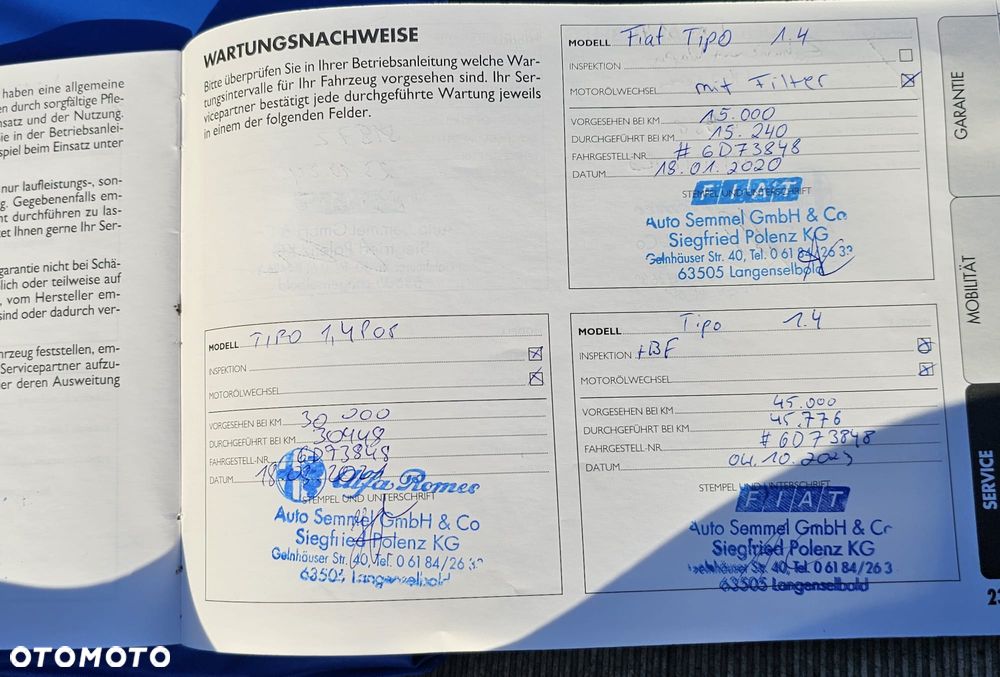 haben eine allgemeine
en durch sorgfältige Pfle-
nsatz und der Nutzung.
Sie in der Betriebsanlei-
spiel beim Einsatz unter
nur laufleistungs-, son-
g. Gegebenenfalls em-
nt durchführen zu las-
tet Ihnen gerne Ihr Ser-
garantie nicht bei Schä-
lich oder teilweise auf
, vom Hersteller em-
sind oder dadurch ver-
rzeug feststellen, em-
Servicepartner aufzu-
er deren Ausweitung
WARTUNGSNACHWEISE
Bitte überprüfen Sie in Ihrer Betriebsanleitung welche War-
tungsintervalle für Ihr Fahrzeug vorgesehen sind. Ihr Ser-
vicepartner bestätigt jede durchgeführte Wartung jeweils
in einem der folgenden Felder.
MODELL Fiat Tipo 1.4
INSPEKTION
MOTORÖLWECHSEL mit Filter
VORGESEHEN BEI KM 15.000
DURCHGEFÜHRT BEI KM 15.240
FAHRGESTELL-NR. # 6D73848
DATUM 13.01.2020
STEMPEL UND UNTERSCHRIFT
FIAT
Auto Semmel GmbH & Co
Siegfried Polenz KG
Gelnhäuser Str. 40, Tel. 0 61 84/26 33
63505 Langenselbold
MODELL TIPO 1,4 Pop
INSPEKTION
MOTORÖLWECHSEL
VORGESEHEN BEI KM 30 000
DURCHGEFÜHRT BEI KM 30448
FAHRGESTELL-NR. 6D73848
DATUM
Alfa Romeo
STEMPEL UND UNTERSCHRIFT
Auto Semmel GmbH & Co
Siegfried Polenz KG
Gelnhäuser Str. 40, Tel. 0 61 84/26 3
63505 Langenselbold
MODELL Tipo 1.4
INSPEKTION +BF
MOTORÖLWECHSEL
VORGESEHEN BEI KM 45.000
DURCHGEFÜHRT BEI KM 45.776
FAHRGESTELL-NR. # 6D73848
DATUM 04.10.202
STEMPEL UND UNTERSCHRIFT
FIAT
Auto Semmel GmbH & Co
Siegfried Polenz KG
Gelnhäuser Str. 40, Tel. 0 61 84/26 3
63505 Langenselbold
GARANTIE
MOBILITÄT
SERVICE
23
OTOMOTO